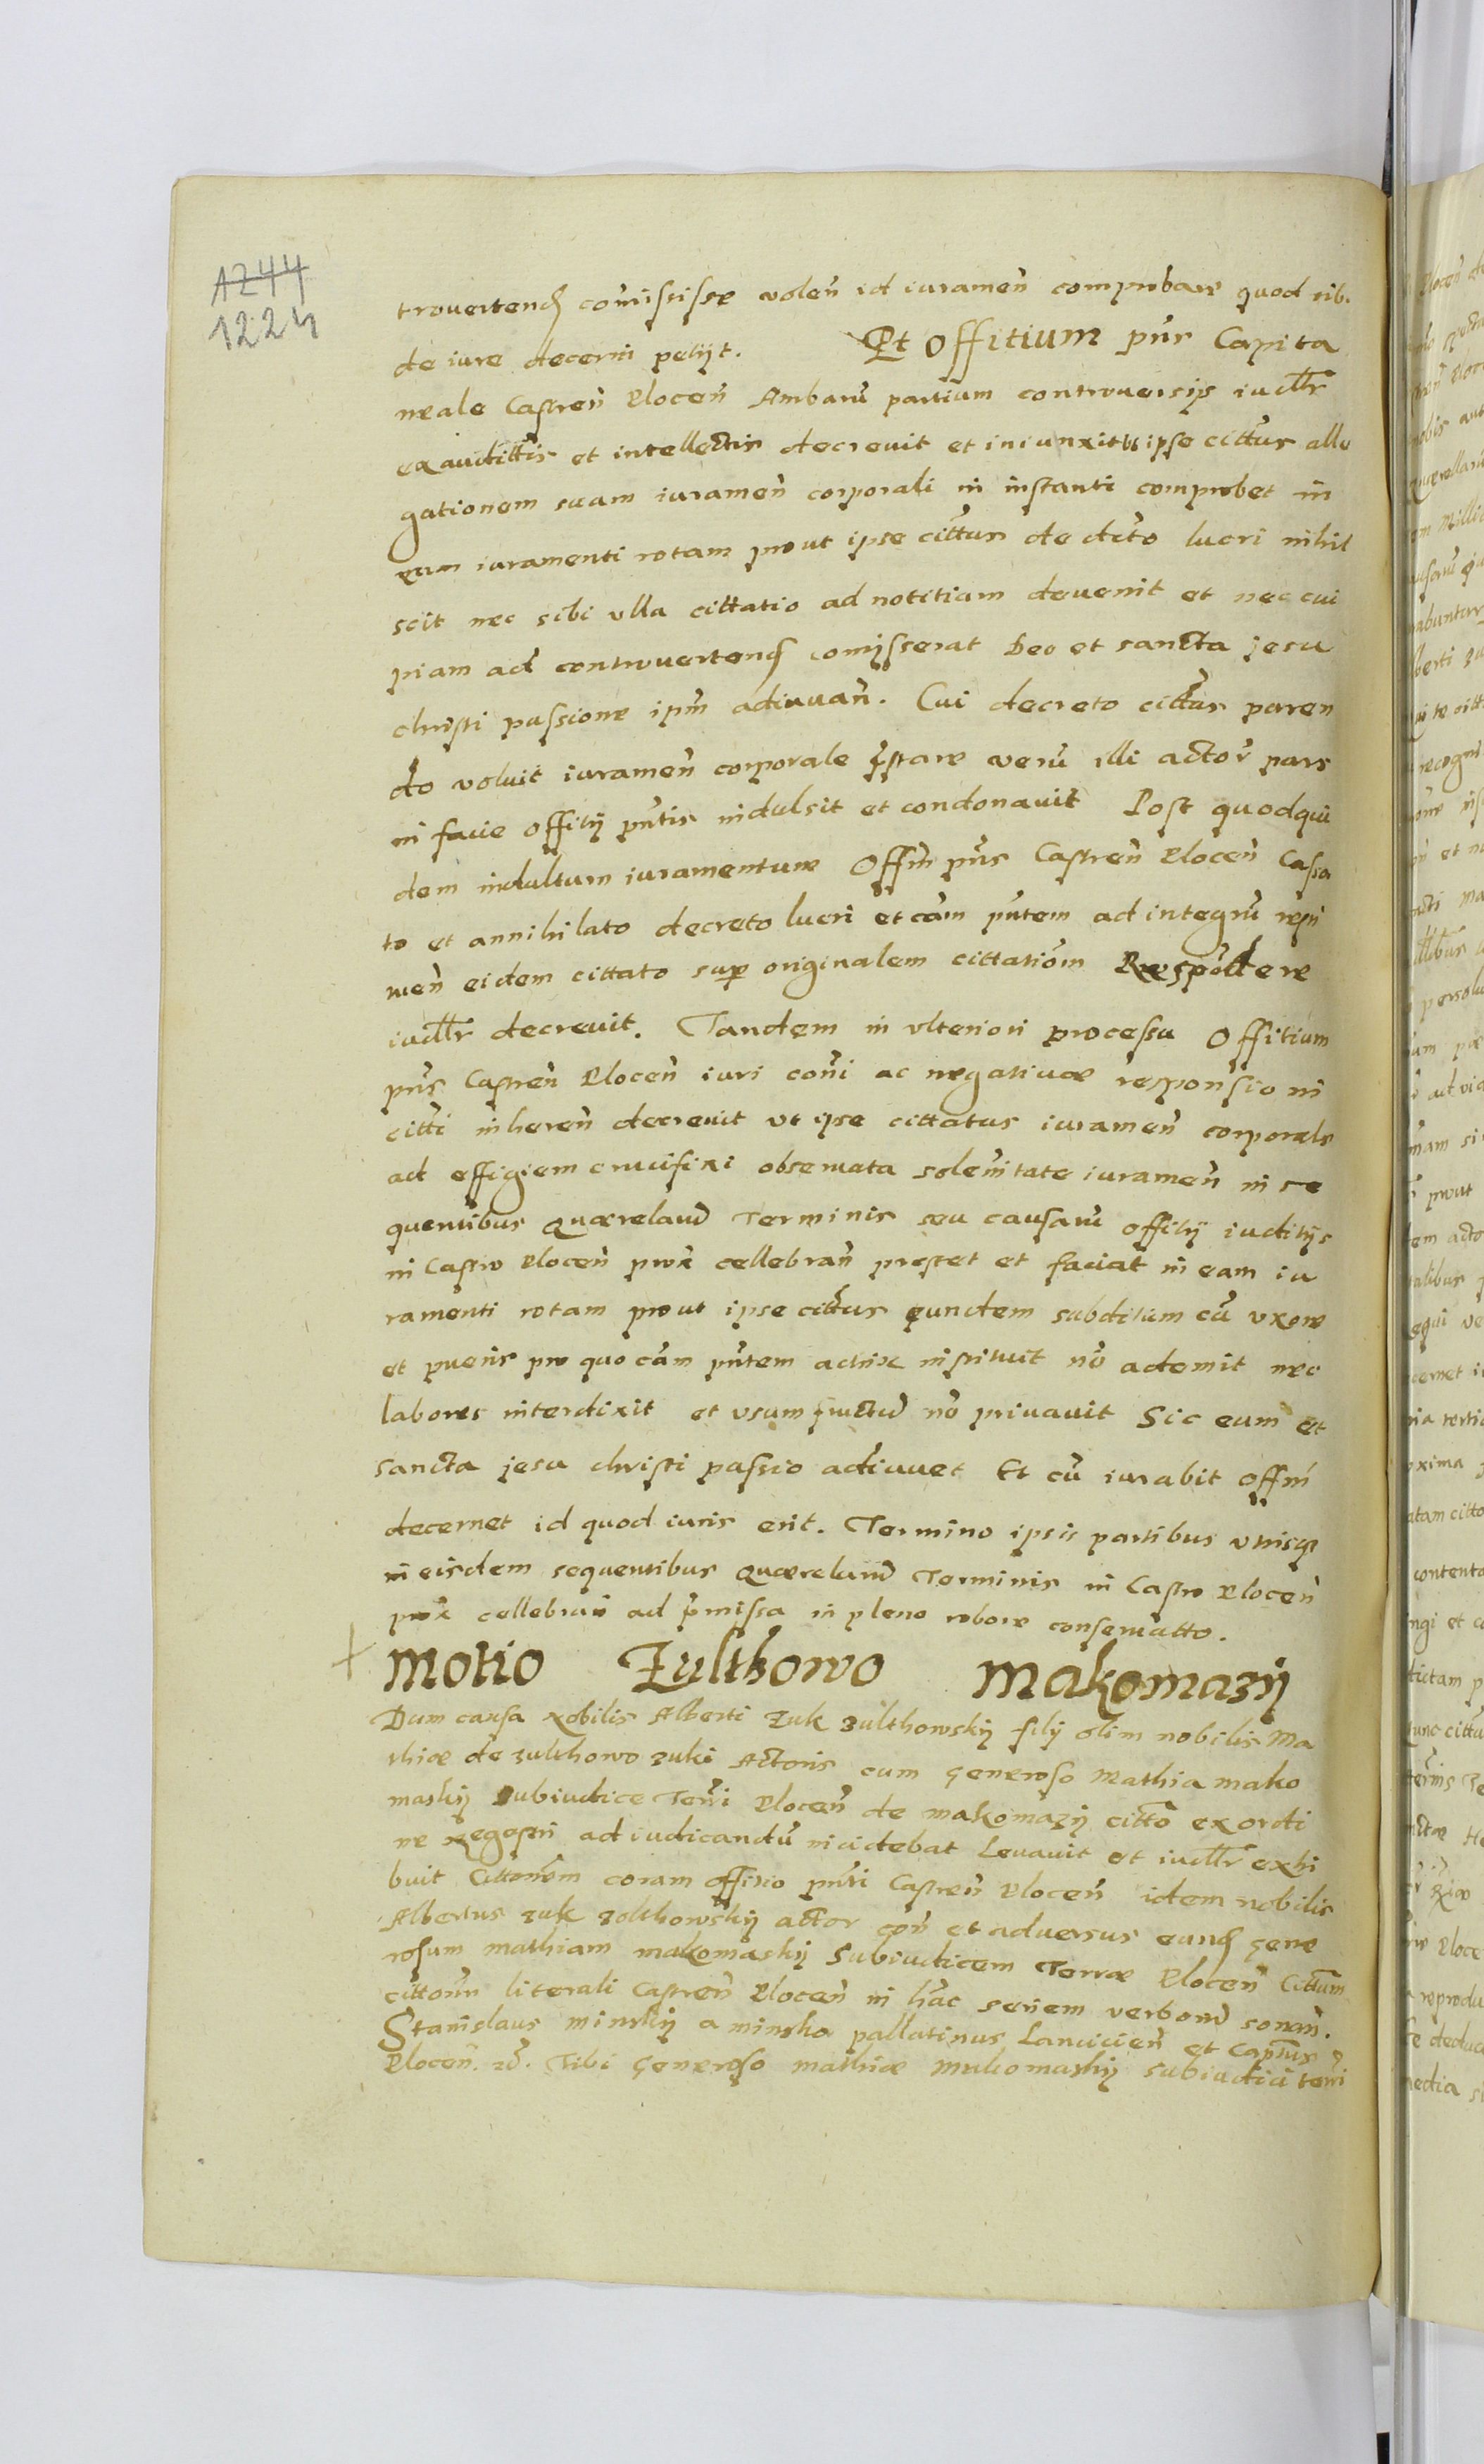 1244
1224
trovertend comississe volen̄ id iuramen̄ comprobare quod sibi
de iure decerni petijt. Et Offitium pn̄s Capita
neale Castren̄ Plocen̄ Ambarū partium controversijs iudllr̄
exaudittis et intellectis decrevit et iniunxit ut ipse cittus alle
gationem suam iuramen̄ corporali in instanti comprobet in
eam iuramenti rotam prout ipse cittus de dicto lucri nihil
scit nec sibi vlla cittatio ad notitiam devenit et nec cui
piam ad controvertend comisserat Deo et sancta jesu
christi passione ipm̄ adiuvan̄. Cui decreto cittus paren
do voluit iuramen̄ corporale p̄stare verū illi actor̄ pars
in facie offitij pn̄tis indulsit et condonavit Post quod qui
dem indultum iuramentum Offm̄ pn̄s Castren̄ Plocen̄ Cassa
to et annihilato decreto lucri et cām pn̄tem ad integrū
men̄ eidem cittato sup originalem cittatiōm Respōdere
iudllr̄ decrevit. Tandem in vlteriori processu Offitium
pn̄s Castren̄ Plocen̄ iuri com̄i ac negativae responsioni
citti inheren̄ decrevit vt ipse cittatus iuramen̄ corporale
ad effigiem crucifixi observata solem̄itate iuramen̄ in se
quentibus Quaerelarū Terminis seu causarū offitij iuditijs
in Castro Plocen̄ prox̄ cellebran̄ prestet et faciat in eam iu
ramenti rotam prout ipse cittus eundem subditum cū vxore
et pueris pro quo cām pn̄tem actrix instituit nō ademit nec
labores interdixit et vsumfructū nō privavit Sic eum et
sancta jesu christi passio adiuvet Et cū iurabit offm̄
decernet id quod iuris erit. Termino ipsis partibus vtrisq
in eisdem sequentibus Quaerelarū Terminis in Castro Plocen̄
prox̄ cellebran̄ ad p̄missa in pleno robore conservatto.
Motio Zulthowo Makomazij
Dum causa Nobilis Alberti Zuk Zulthowskij filij olim nobilis Ma
thiae de Zulthowo Zuki Actoris cum Generoso Mathia Mako
maskij Subiudice Terr̄i Plocen̄ de Makomazij citto ex ordi
ne Regestri ad iudicandū incidebat Levavit et iudllr̄ exhi
buit Cittonem coram offitio pn̄ti Castren̄ Plocen̄ idem nobilis
Albertus Zuk Zolthowskij actor con̄ et adversus eund Gene
rosum Mathiam Makomaskij Subiudicem Terrae Plocen̄ Cittum
citton̄ literali Castren̄ Plocen̄ in hāc seriem verborū sonan̄.
Stanislaus Minskij a Minsko pallatinus Lancicien̄ et Captn̄us
Plocen̄. Tibi Generoso Mathiae Makomaskij Subiudici terri